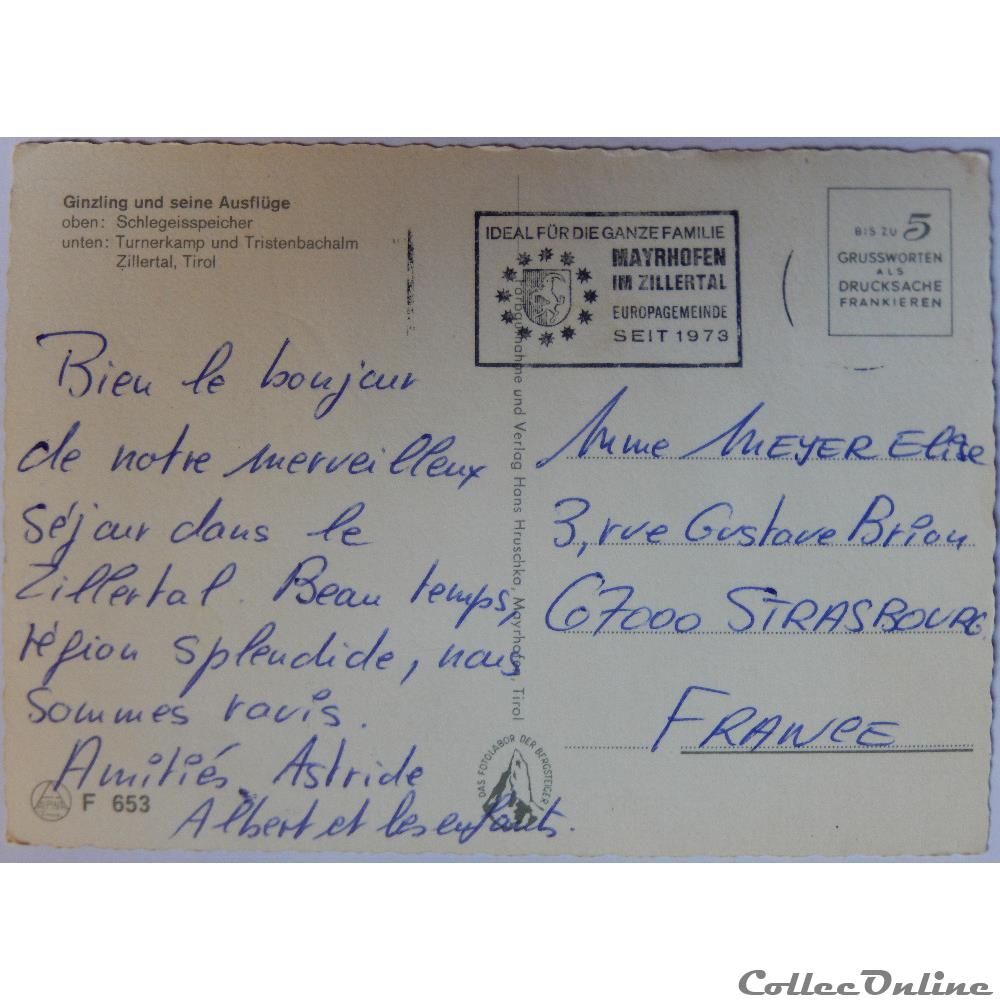 Ginzling und seine Ausflüge
oben: Schlegeisspeicher
unten: Turnerkamp und Tristenbachalm
Zillertal, Tirol
IDEAL FÜR DIE GANZE FAMILIE
MAYRHOFEN
IM ZILLERTAL
EUROPAGEMEINDE
SEIT 1973
BIS ZU 5
GRUSSWORTEN
ALS
DRUCKSACHE
FRANKIEREN
Bien le bonjour
de notre merveilleux
séjour dans le
Zillertal. Beau temps,
région splendide, nous
sommes ravis.
Amitiés Astride
Albert et les enfants.
Farbaufnahme und Verlag Hans Hruschka, Mayrhofen, Tirol
Mme MEYER Elise
3, rue Gustave Brion
67000 STRASBOURG
FRANCE
F 653
DAS FOTOLABOR DER BERGSTEIGER
CollecOnline